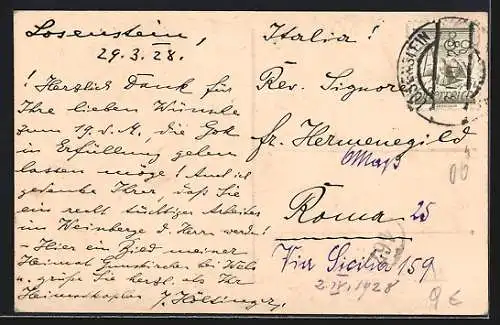 Losenstein,
29.3.28.
! Herzlich Dank für
Ihre lieben Wünsche
zum 19. d. M., die Gott
in Erfüllung gehen
lassen möge! Auch ich
gedenke Ihrer, daß Sie
ein recht tüchtiger Arbeiter
im Weinberge d. Herrn werde!
- Hier ein Bild meiner
Heimat Gunskirchen bei Wels
u. grüße Sie herzl. als Ihr
Heimatkaplan J. Höltinger,
Italia!
Rev. Signore
fr. Hermenegild
Roma 25
Via Sicilia 159
2.IV.1928
LOSENSTEIN
9 €